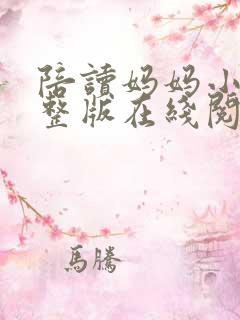 陪讀妈妈小
整版在綫閱
馬騰